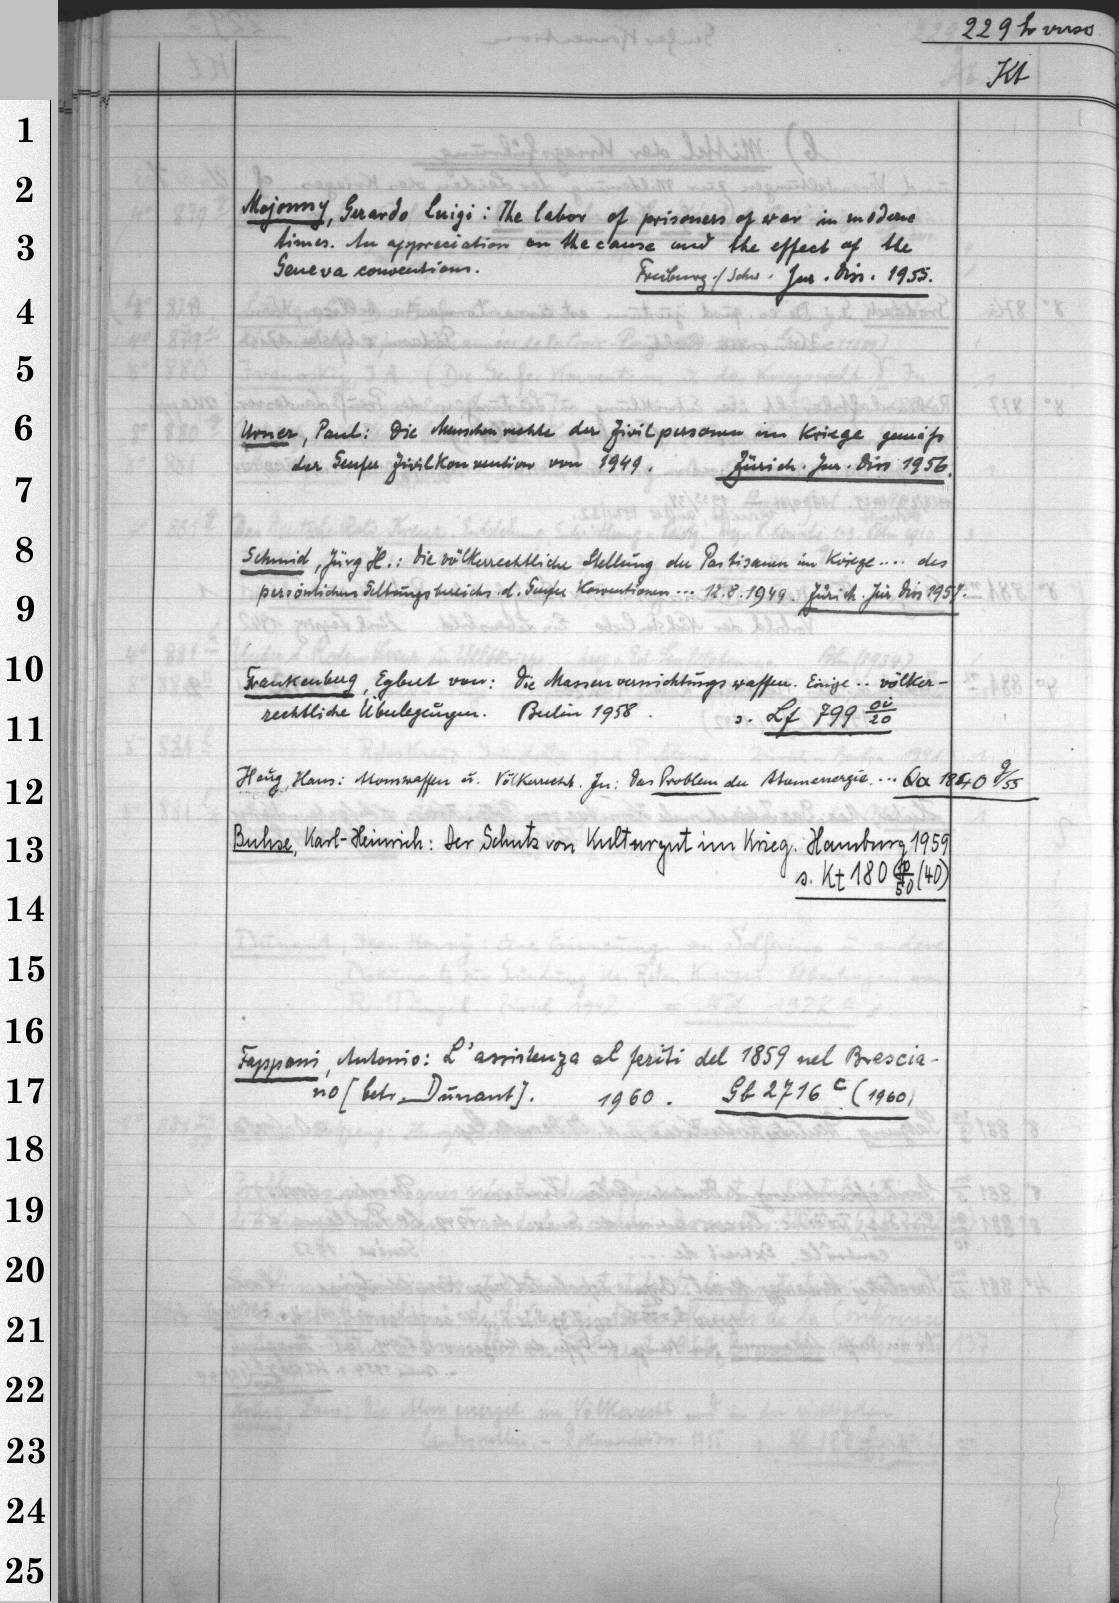 229 h verso
Kt
1
2
Mojonny, Gerardo Luigi: The labor of prisoners of war in moderne
3
times. An appreciation on the cause and the effect of the
Geneva conventions. Freiburg/Schw. Jur. Diss. 1955.
4
5
6
Urner, Paul: Die Menschenrechte der Zivilpersonen im Kriege gemäß
der Genfer Zivilkonvention von 1949. Zürich. Jur. Diss 1956.
7
8
Schmid, Jürg H.: Die völkerrechtliche Stellung der Partisanen im Kriege .... des
9
persönlichen Geltungsbereichs d. Genfer Konventionen ... 12.8.1949. Zürich. Jur. Diss 1957.
10
Frankenberg, Egbert von: Die Massenvernichtungswaffen. Einige .. völker-
11
rechtliche Überlegungen. Berlin 1958. s. Lf 799 oi/20
12
Haug, Hans: Atomwaffen u. Völkerrecht. In: Das Problem der Atomenergie. ... Qa 1840 9/55
13
Buhse, Karl-Heinrich: Der Schutz von Kulturgut im Krieg. Hamburg 1959
s. Kt 180 /50 (40)
14
15
16
Fappani, Antonio: L'assistenza ai feriti del 1859 nel Brescia-
17
no [betr. Dunant]. 1960. Gb 2716 c (1960)
18
19
20
21
22
23
24
25